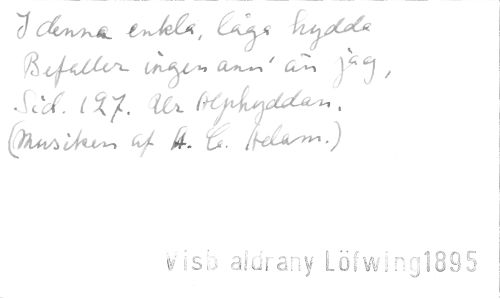 I denna enkla, låga hydda
Befaller ingen ann' än jag,
Sid. 197. Ur Alphyddan.
(Musiken af A. C. Adam.)
Visb aldrany Löfwing1895